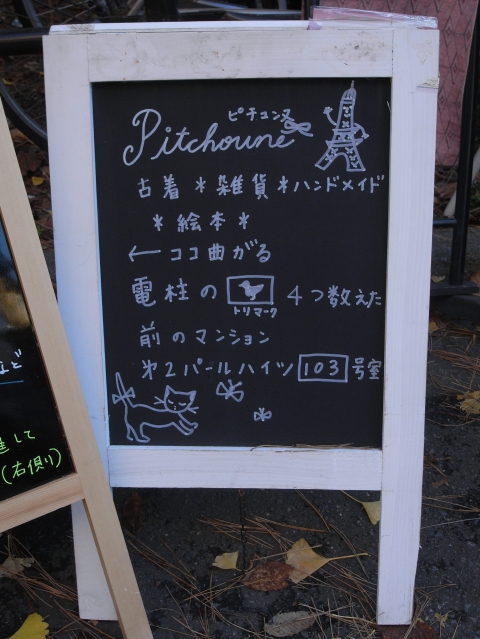 ピチュンヌ
Pitchoune
古着＊雑貨＊ハンドメイド
＊絵本＊
←ココ曲がる
電柱の 4つ数えた
トリマーク
前のマンション
第2パールハイツ 103 号室
して
(右側)